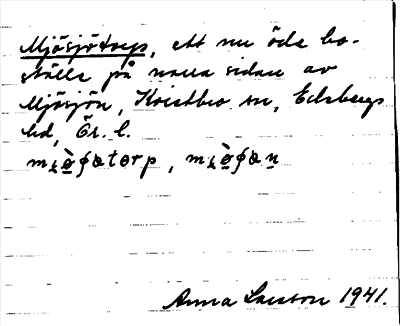 Mjösjötorp, ett nu öde bo-
ställe på norra sidan av
Mjösjön, Kvistbro sn, Edsbergs
hd, Ör. l.
Anna Larsson 1941.